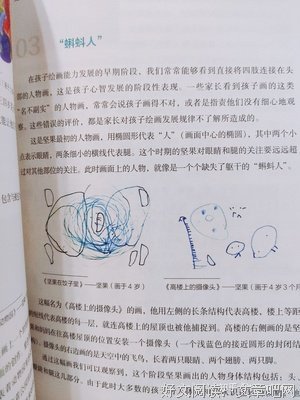 03
“蝌蚪人”
在孩子绘画能力发展的早期阶段，我们常常能够看到直接将四肢连接在头
部的人物画，这是孩子心智发展的阶段性表现。一些家长看到孩子画的这类
“名不副实”的人物画，常常会说孩子画得不对，或者是指责他们没有细心地观
察。这些错误的评价，都是家长对孩子绘画发展规律不了解所造成的。
这是坚果最初的人物画，用椭圆形代表“人”（画面中心的椭圆），其中两个小
点表示眼睛，两条细小的横线代表腿。这个时期的坚果对眼睛和腿的关注要远远超
过对其他部位的关注。此时画面上的人物，就像是一个个缺失了躯干的“蝌蚪人”。
包含
《坚果在饺子里》——坚果（画于4岁）
《高楼上的摄像头》——坚果（画于4岁3个月
这幅名为《高楼上的摄像头》的画，他用左侧的长条结构代表高楼，上楼
线则代表高楼的每一层，就连高楼上的屋顶也被他捕捉到。高楼的右侧画的是坚
的人物和斜趴在挂在高楼屋顶的位置安装一个摄像头（一个浅蓝色的接近圆形的封闭结
构），摄像头的右边画的是天空中的飞鸟，长着两只眼睛、两个翅膀、两只脚。
通过这两幅画我们可以观察到，这个阶段坚果画出的人物身体结构包括：头、
眼和腿这几部分。由于此时大多数的孩
好文阅读训练营学吧网